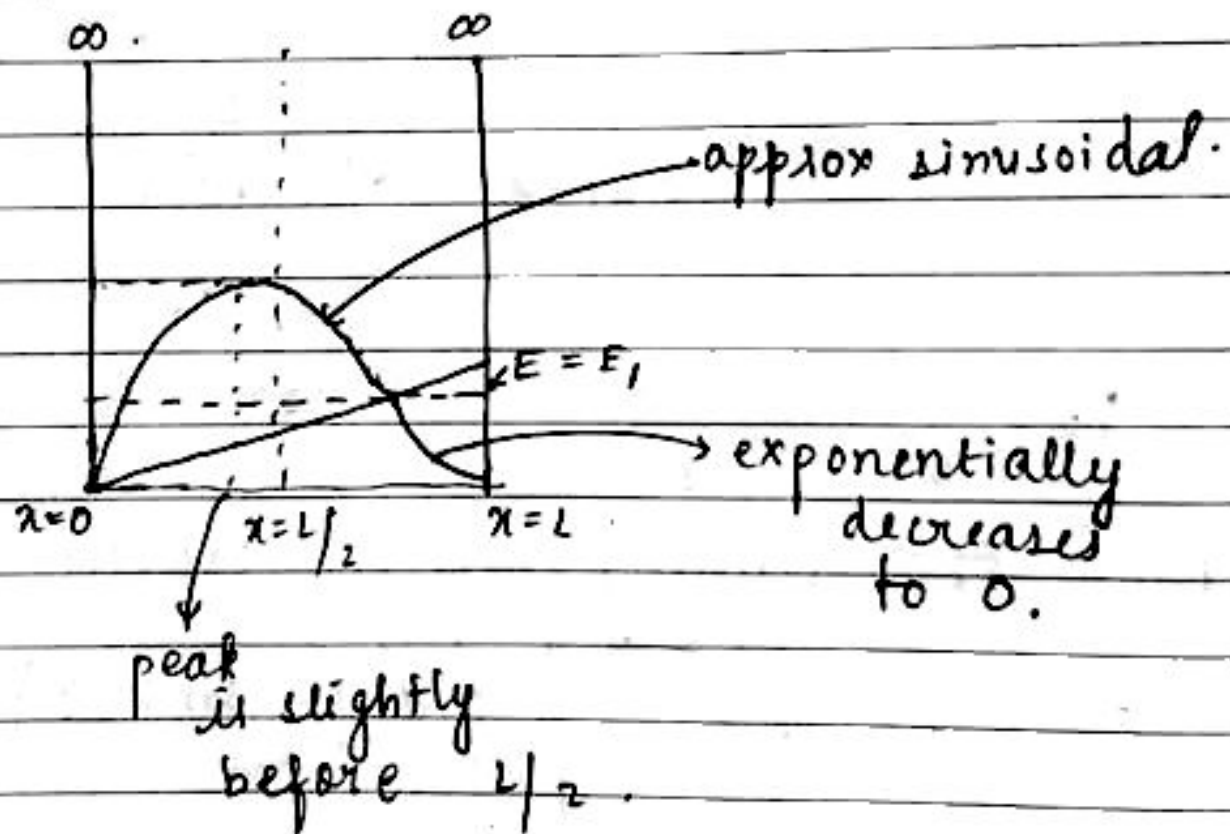 ∞ .
∞
approx sinusoidal.
E = E₁
exponentially
decreases
to 0.
x=0
x=L/2
x=L
peak
is slightly
before L/2.